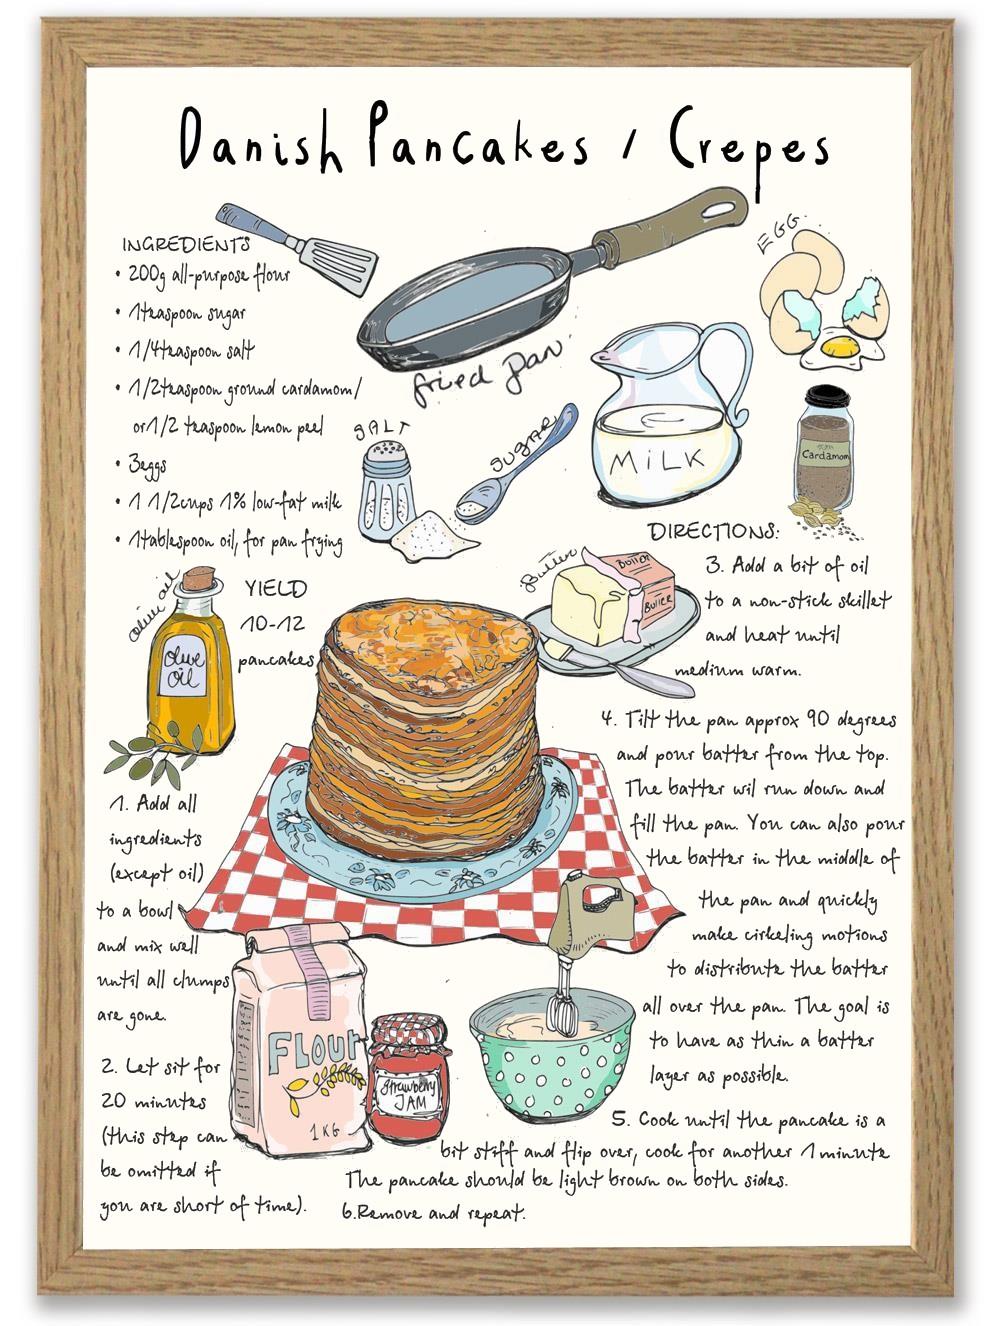 Danish Pancakes / Crepes
INGREDIENTS
• 200g all-purpose flour
• 1teaspoon sugar
• 1/4teaspoon salt
• 1/2teaspoon ground cardamom/
or1/2 teaspoon lemon peel
• 3eggs
• 1 1/2cups 1% low-fat milk
• 1tablespoon oil, for pan frying
fried pan
EGG
SALT
SUGAR
MiLK
Cardamom
Butter
Butter
Butter
olive oil
olive
oil
YIELD
10-12
pancakes
1. Add all
ingredients
(except oil)
to a bowl
and mix well
until all clumps
are gone.
2. Let sit for
20 minutes
(this step can
be omitted if
you are short of time).
FLOUR
1KG
Strawberry
JAM
DIRECTIONS:
3. Add a bit of oil
to a non-stick skillet
and heat until
medium warm.
4. Tilt the pan approx 90 degrees
and pour batter from the top.
The batter wil run down and
fill the pan. You can also pour
the batter in the middle of
the pan and quickly
make cirkeling motions
to distribute the batter
all over the pan. The goal is
to have as thin a batter
layer as possible.
5. Cook until the pancake is a
bit stiff and flip over, cook for another 1 minute
The pancake should be light brown on both sides.
6.Remove and repeat.